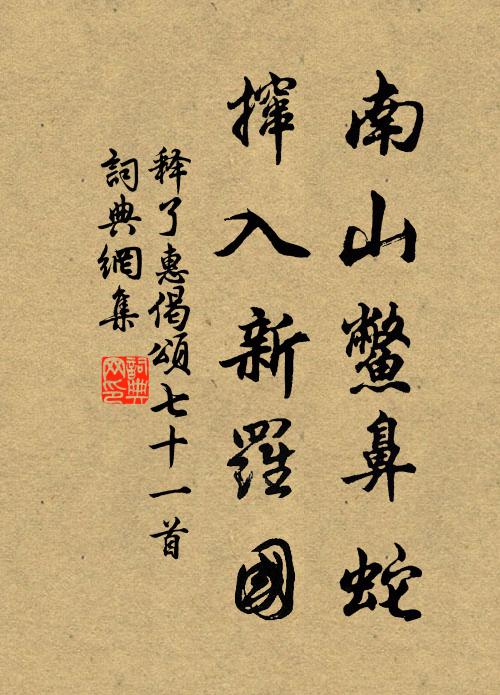 南山鱉鼻蛇
撺入新羅國
释了惠偈頌七十一首
詞典網集
詞典网印